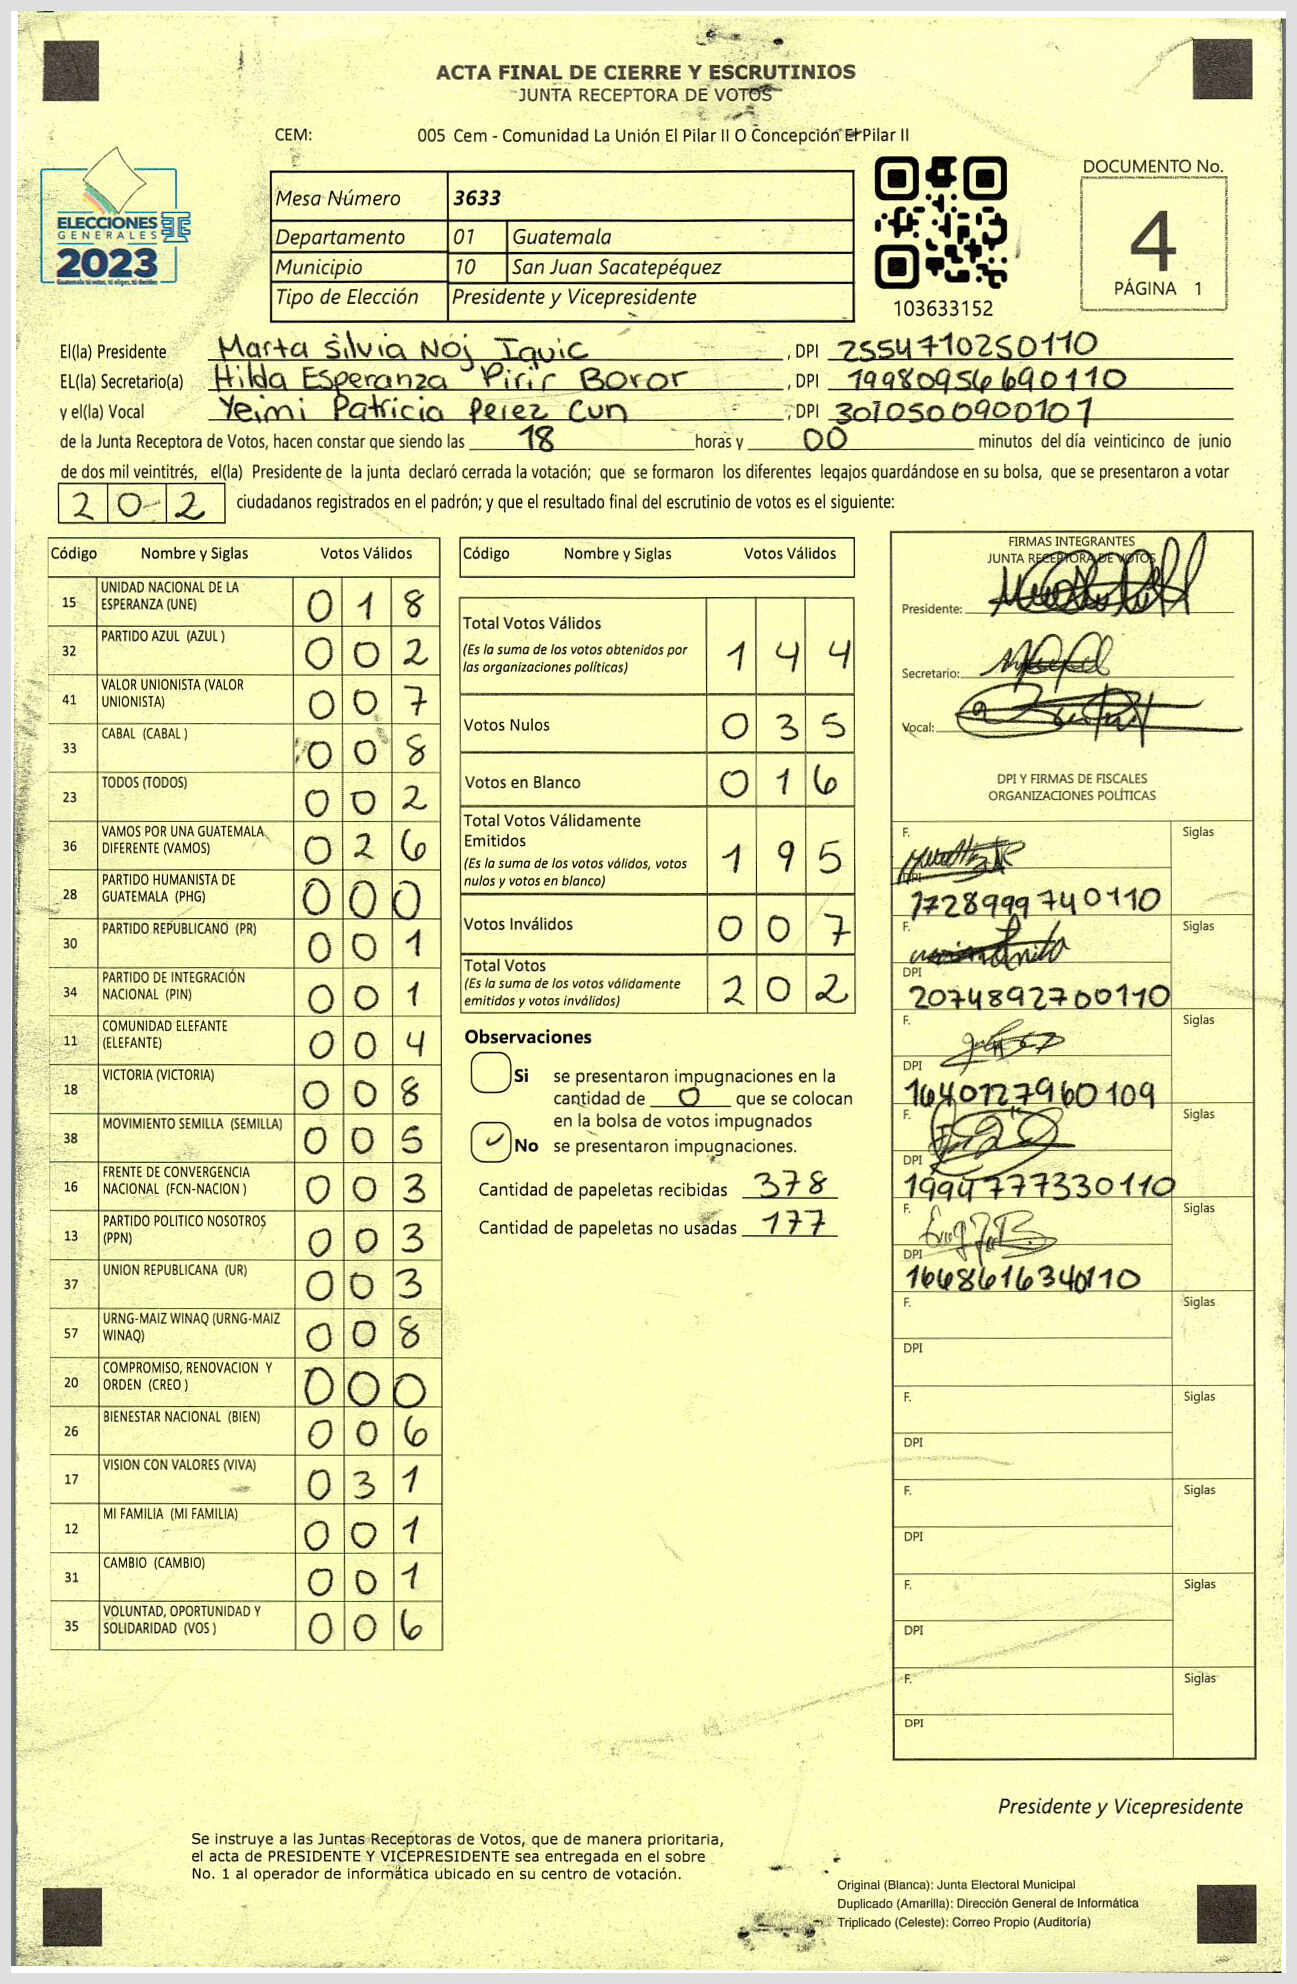 ACTA FINAL DE CIERRE Y ESCRUTINIOS
JUNTA RECEPTORA DE VOTOS
CEM: 005 Cem - Comunidad La Unión El Pilar II O Concepción El Pilar II
ELECCIONES
GENERALES
2023
Mesa Número 3633
Departamento 01 Guatemala
Municipio 10 San Juan Sacatepéquez
Tipo de Elección Presidente y Vicepresidente
103633152
DOCUMENTO No.
4
PÁGINA 1
El(la) Presidente Marta Silvia Noj Iquic, DPI 2554710250110
EL(la) Secretario(a) Hilda Esperanza Pirir Boror, DPI 19980956690110
y el(la) Vocal Yeimi Patricia Perez Cun, DPI 3010500900101
de la Junta Receptora de Votos, hacen constar que siendo las 18 horas y 00 minutos del día veinticinco de junio
de dos mil veintitrés, el(la) Presidente de la junta declaró cerrada la votación; que se formaron los diferentes legajos quardándose en su bolsa, que se presentaron a votar
202 ciudadanos registrados en el padrón; y que el resultado final del escrutinio de votos es el siguiente:
Código Nombre y Siglas Votos Válidos
15 UNIDAD NACIONAL DE LA ESPERANZA (UNE) 018
32 PARTIDO AZUL (AZUL ) 002
41 VALOR UNIONISTA (VALOR UNIONISTA) 007
33 CABAL (CABAL ) 008
23 TODOS (TODOS) 002
36 VAMOS POR UNA GUATEMALA DIFERENTE (VAMOS) 026
28 PARTIDO HUMANISTA DE GUATEMALA (PHG) 000
30 PARTIDO REPUBLICANO (PR) 001
34 PARTIDO DE INTEGRACIÓN NACIONAL (PIN) 001
11 COMUNIDAD ELEFANTE (ELEFANTE) 004
18 VICTORIA (VICTORIA) 008
38 MOVIMIENTO SEMILLA (SEMILLA) 005
16 FRENTE DE CONVERGENCIA NACIONAL (FCN-NACION ) 003
13 PARTIDO POLITICO NOSOTROS (PPN) 003
37 UNION REPUBLICANA (UR) 003
57 URNG-MAIZ WINAQ (URNG-MAIZ WINAQ) 008
20 COMPROMISO, RENOVACION Y ORDEN (CREO ) 000
26 BIENESTAR NACIONAL (BIEN) 006
17 VISION CON VALORES (VIVA) 031
12 MI FAMILIA (MI FAMILIA) 001
31 CAMBIO (CAMBIO) 001
35 VOLUNTAD, OPORTUNIDAD Y SOLIDARIDAD (VOS ) 006
Código Nombre y Siglas Votos Válidos
Total Votos Válidos 144
(Es la suma de los votos obtenidos por
las organizaciones políticas)
Votos Nulos 035
Votos en Blanco 016
Total Votos Válidamente
Emitidos 195
(Es la suma de los votos válidos, votos
nulos y votos en blanco)
Votos Inválidos 007
Total Votos 202
(Es la suma de los votos válidamente
emitidos y votos inválidos)
Observaciones
Si se presentaron impugnaciones en la
cantidad de 0 que se colocan
en la bolsa de votos impugnados
No se presentaron impugnaciones.
Cantidad de papeletas recibidas 378
Cantidad de papeletas no usadas 177
FIRMAS INTEGRANTES
JUNTA RECEPTORA DE VOTOS
Presidente:
Secretario:
Vocal:
DPI Y FIRMAS DE FISCALES
ORGANIZACIONES POLÍTICAS
F. Siglas
DPI
1728999740110
F. Siglas
DPI
2074892700110
F. Siglas
DPI
1640127960109
F. Siglas
DPI
1994777330110
F. Siglas
DPI
1668616340110
F. Siglas
DPI
F. Siglas
DPI
F. Siglas
DPI
F. Siglas
DPI
F. Siglas
DPI
Presidente y Vicepresidente
Se instruye a las Juntas Receptoras de Votos, que de manera prioritaria,
el acta de PRESIDENTE Y VICEPRESIDENTE sea entregada en el sobre
No. 1 al operador de informática ubicado en su centro de votación.
Original (Blanca): Junta Electoral Municipal
Duplicado (Amarilla): Dirección General de Informática
Triplicado (Celeste): Correo Propio (Auditoría)